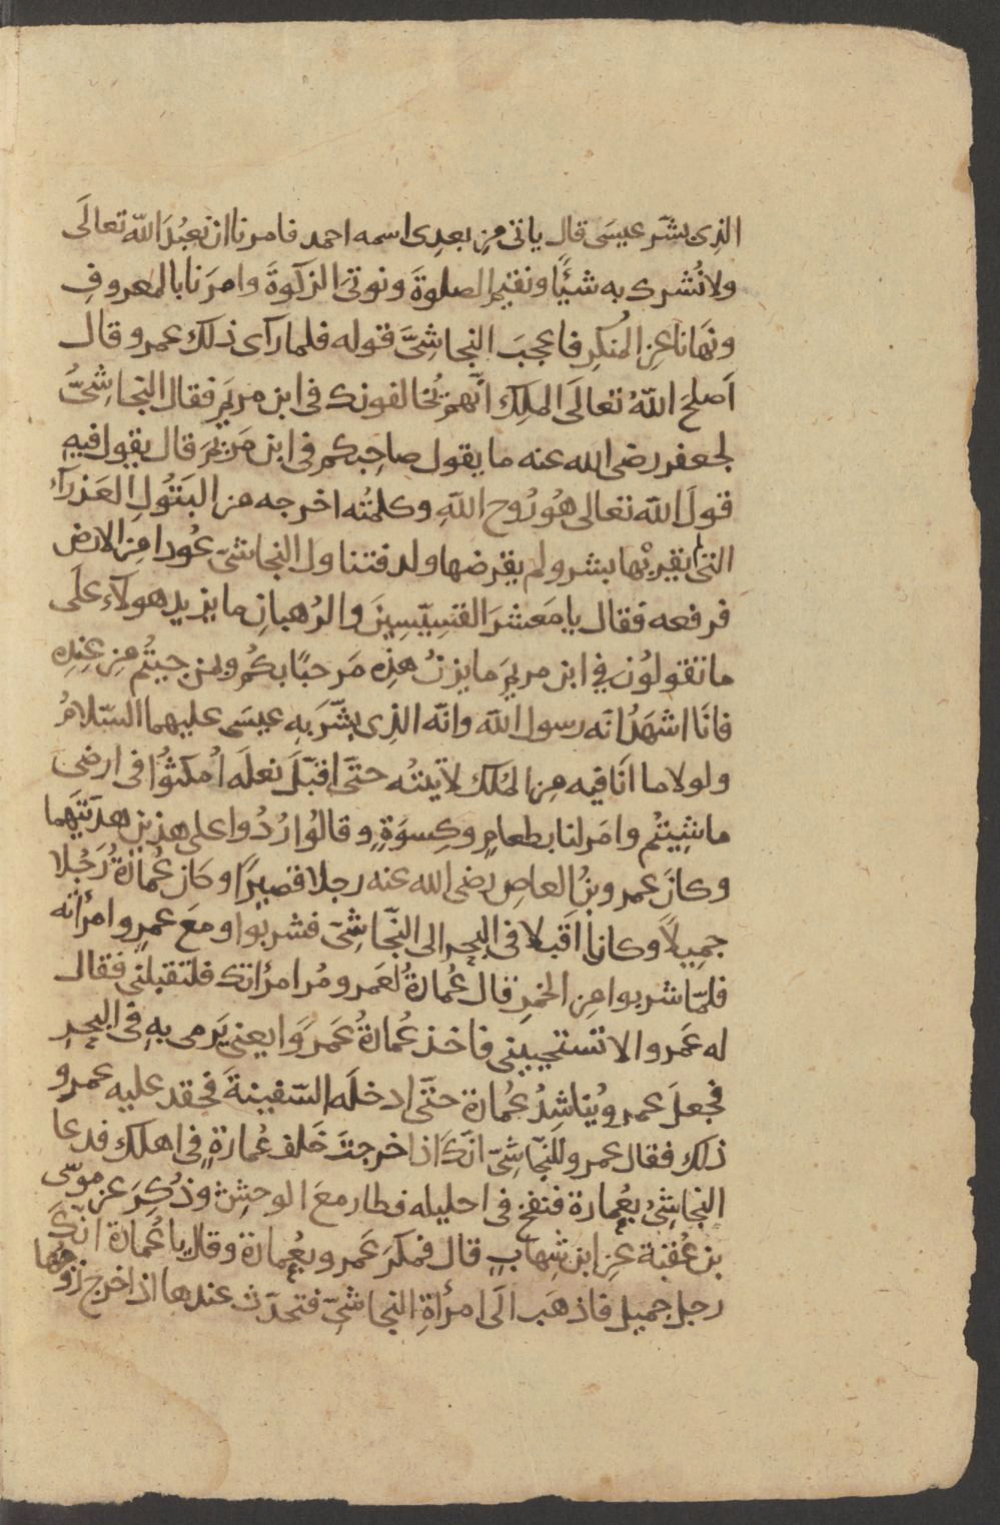 الذِى بشّر عيسَى قال ياتى مِن بعدِى اسمه احمد فامرنا ان نعبُدَ اللّه تعالَى
ولا نُشرك به شيئًا ونقيمِ الصلوةَ ونوتىَ الزكوةَ وامرَنا بالمعروفِ
ونهَانا عنِ المُنكِر فاعجبَ النجاشِىَّ قوله فلما رآى ذلك عمرو قال
اَصلحَ اللّهُ تعالَى الملِكَ انّهم يُخالفونك فى ابن مريَم فقال النجاشِىُّ
لجعفر رضى الله عنه ما يقول صاحِبكم فى ابن مَريَمَ قال يقول فيهِ
قولَ اللّه تعالى هُو رُوح اللّهِ وكلمتُه اخرجه من البَتُولِ العَذرآءِ
التى لم يقرَبْها بشر ولم يقرضها ولد فتناول النجاشىّ عُودا مِن الارض
فرفعه فقال يا مَعشرَ القسِيّسِينَ والرُهبانِ ما يزيد هولآءِ علَى
ما تقولُون فِي ابن مريمَ ما يزنُ هذِه مَرحبًا بكُم وبمن جيتُم مِن عِندِه
فانَا اشهَدُ انّه رسول اللّه وانّه الذِى بشّرَ بهِ عيسَى عليهما السّلامُ
ولولا ما انَا فيه مِن المُلك لاَتيتُه حتَّى اقبّلَ نعلَه اُمكثُوا فى ارضى
ما شِيتُم وامَر لنا بطعامٍ وكِسوَةٍ وقالُوا رُدُوا على هذين هدَيّتَهما
وكانَ عمرو بنُ العاصِ رضى الله عنه رجلا قصيرًا وكان عُمارَةُ رَجُلا
جمِيلاً وكانا اَقبلا فى البحر الى النّجاشِىّ فشربُوا ومعَ عمرٍو امرُاته
فلمّا شربوا مِن الخمرِ قال عُمارَةُ لعَمرو مُر امرُاتك فلتقبلنى فقال
له عَمرو الا تستحيينِى فاخذ عُمارَةُ عَمرَوا يعنِى يَرمى بهِ فى البحرِ
فجعلَ عمرو يُناشِدُ عُمارة حتَّى ادخلَه السّفينةَ فحقد عليه عمرو
ذلك فقال عمرو للنّجاشِىّ انّكَ اذا خرجتَ خَلف عُمارةٍ فى اهلك فدعا
النجاشِىُ بعُمارة فنفخ فى احليله فطار معَ الوحشِ وذُكِرَ عن موسَى
بن عُقبة عنِ ابن شِهابٍ قال فمكرَ عَمرو بعُمارة وقال يا عُمارَة انّكَ
رجل جميل فاذهَب الَى امرُاةِ النجاشىّ فتحدّث عندها اذا خرج زوجُها